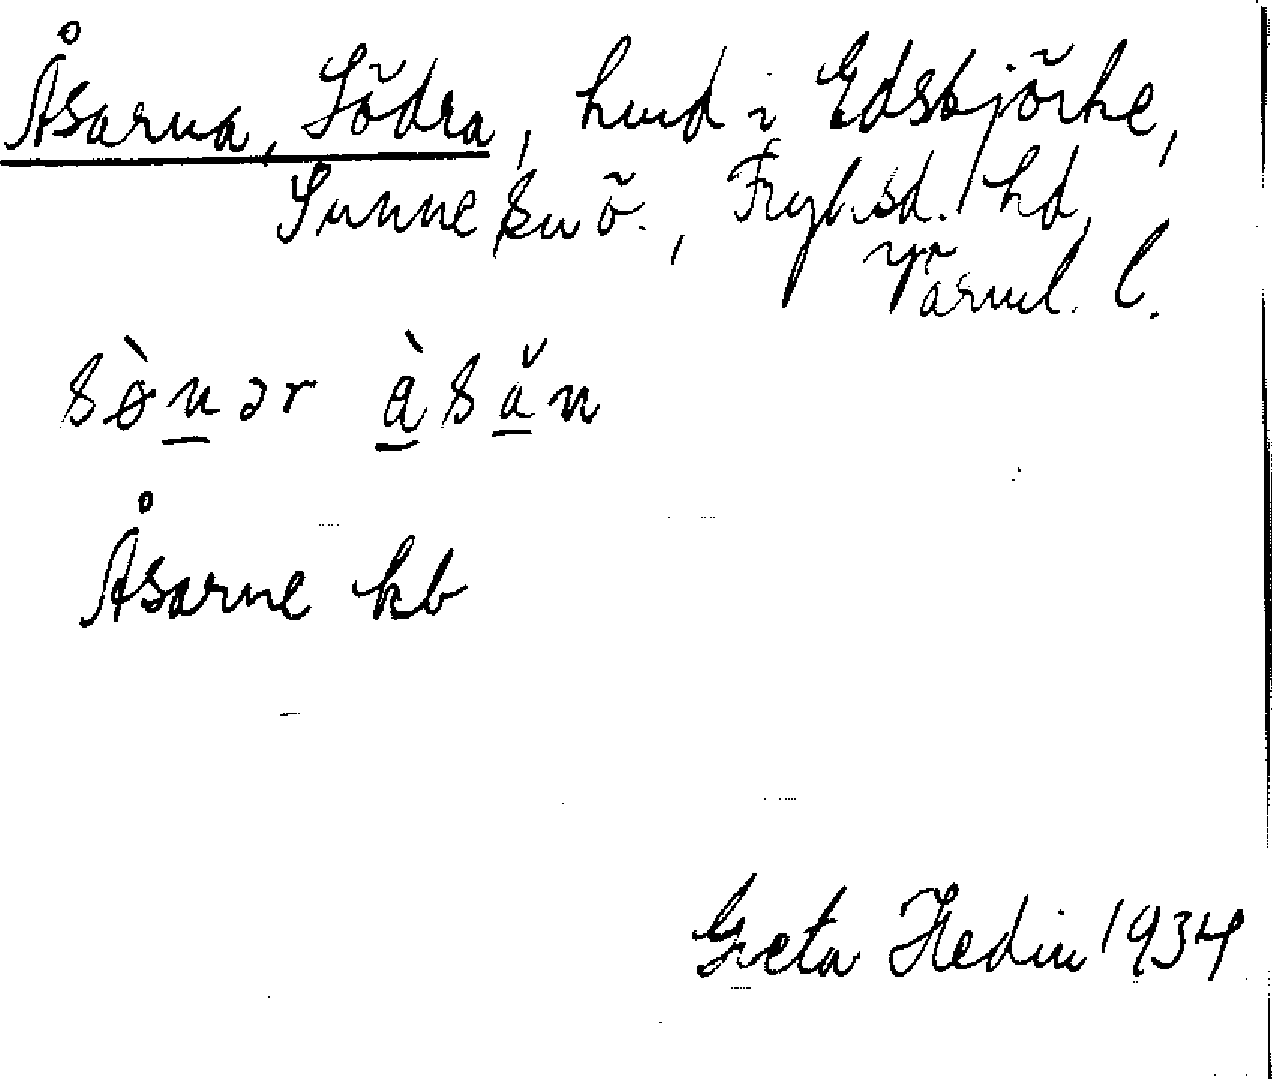 Åsarna, Södra, hmd i Edsbjörke,
Sunne sn ö., Fryksd. hd,
Värml. l.
sø̀nər àsăn
Åsarne kb
Greta Hedin 1934